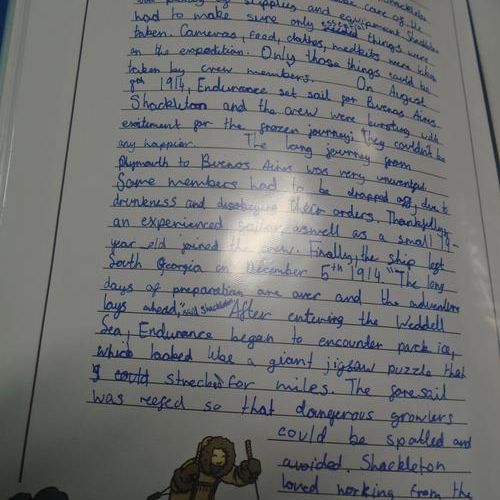 was putting by supplies and equipment. Shackleton
had to make sure only essential things were
taken. Cameras, food, clothes, medkits were taken
on the expedition. Only those things could be
taken by crew members. On August
9th 1914, Endurance set sail for Buenos Aires.
Shackleton and the crew were bursting with
excitement for the frozen journey; they couldn't be
any happier. The long journey from
Plymouth to Buenos Aires was very uneventful.
Some members had to be dropped off due to
drunkeness and disobeying their orders. Thankfully,
an experienced sailor aswell as a small 19-
year old joined the crew. Finally, the ship left
South Georgia on December 5th 1914. "The long
days of preparation are over and the adventure
lays ahead," said Shackleton. After entering the Weddell
Sea, Endurance began to encounter pack ice,
which looked like a giant jigsaw puzzle that
streched for miles. The foresail
was reefed so that dangerous growlers
could be spotted and
avoided. Shackleton
loved working from the